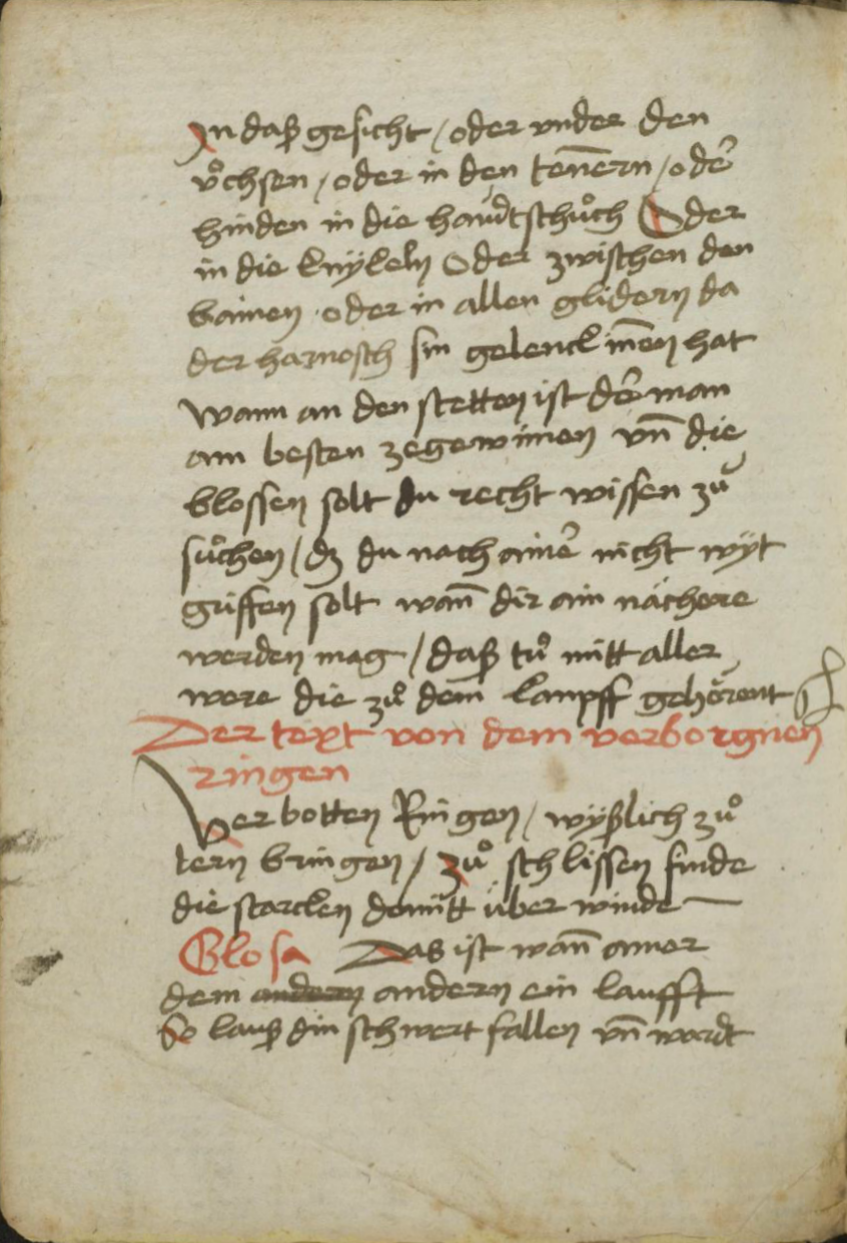 In daß gesicht / oder vnder den
v̊chsen / oder in den tenēern / odē
hinden in die handtschůch Oder
in die knÿkeln Oder zwischen den
bainen · oder in allen glidern da
der harnosch sin gelenck iñen hat
Wann an den stetten ist dē man
am besten zegewinnen vn̄ die
blossen solt du recht wissen zů
sůchen / dz du nach ainē nicht wÿt
griffen solt wan̄ dir ain nächere
werden mag / daß tů mitt aller
were die zů dem kampff gehörent
Der text von dem verborgnen
ringen
Verbotten Ringen / wÿßlich zů
lern bringen / zů schlissen finde
die starcken damitt über winde
Glosa Das ist wan̄ ainer
dem andern andern ein laufft
So lauß din schwert fallen vn̄ wardt